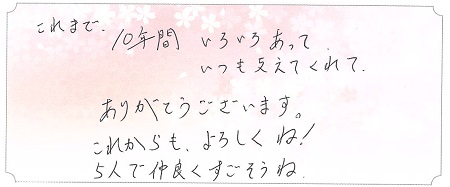 これまで、
10年間 いろいろあって
いつも支えてくれて、
ありがとうございます。
これからも、よろしくね!
5人で仲良くすごそうね